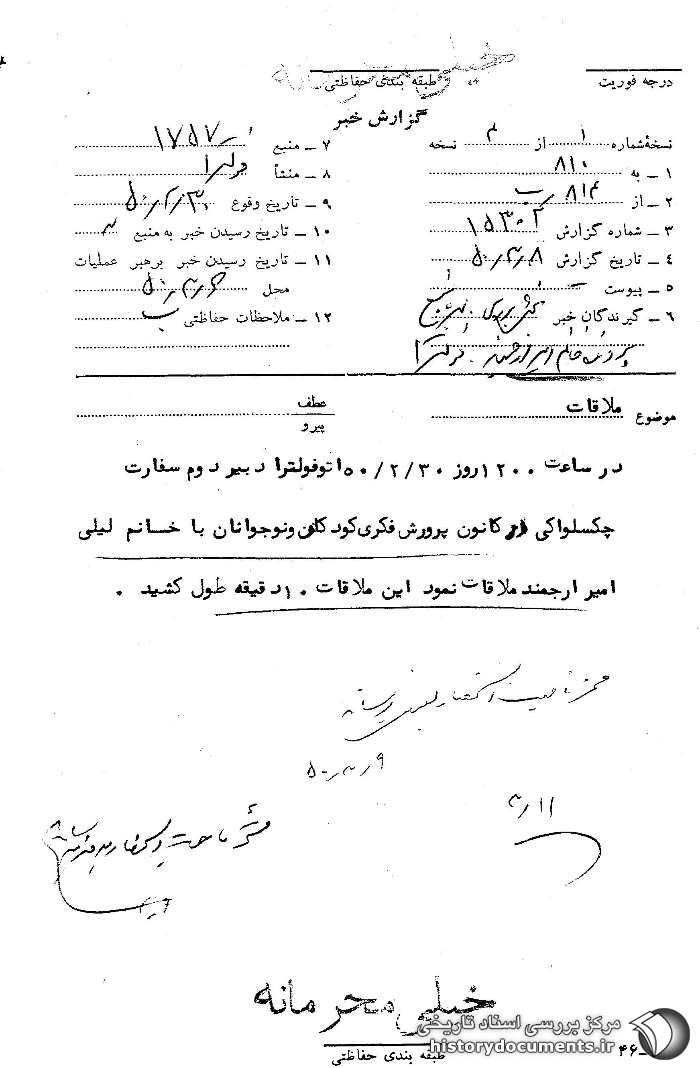 خیلی محرمانه
درجه فوریت
طبقه بندی حفاظتی
گزارش خبر
نسخهٔ شماره ۱ از ۲ نسخه
۱ ـ به ۸۱۰
۲ ـ از ۸۱۴ ب
۳ ـ شماره گزارش ۱۵۳۰۲
۴ ـ تاریخ گزارش ۵۰٫۳٫۸
۵ ـ پیوست
۶ ـ گیرندگان خبر
پرونده خانم امیر ارجمند ـ فولترا
۷ ـ منبع ۱۷۵۷
۸ ـ منشأ فولترا
۹ ـ تاریخ وقوع ۵۰٫۲٫۳۰
۱۰ ـ تاریخ رسیدن خبر به منبع
۱۱ ـ تاریخ رسیدن خبر برهبر عملیات
محل ۵۰٫۳٫۶
۱۲ ـ ملاحظات حفاظتی
موضوع ملاقات
عطف
پیرو
در ساعت ۱۲۰۰ روز ۵۰/۲/۳۰ اتوفولترا دبیر دوم سفارت
چکسلواکی در کانون پرورش فکری کودکان و نوجوانان با خانم لیلی
امیر ارجمند ملاقات نمود این ملاقات ۱۰ دقیقه طول کشید .
۵۰٫۳٫۹
۳٫۱۱
خیلی محرمانه
طبقه بندی حفاظتی
ـ۴۶
مرکز بررسی اسناد تاریخی
historydocuments.ir